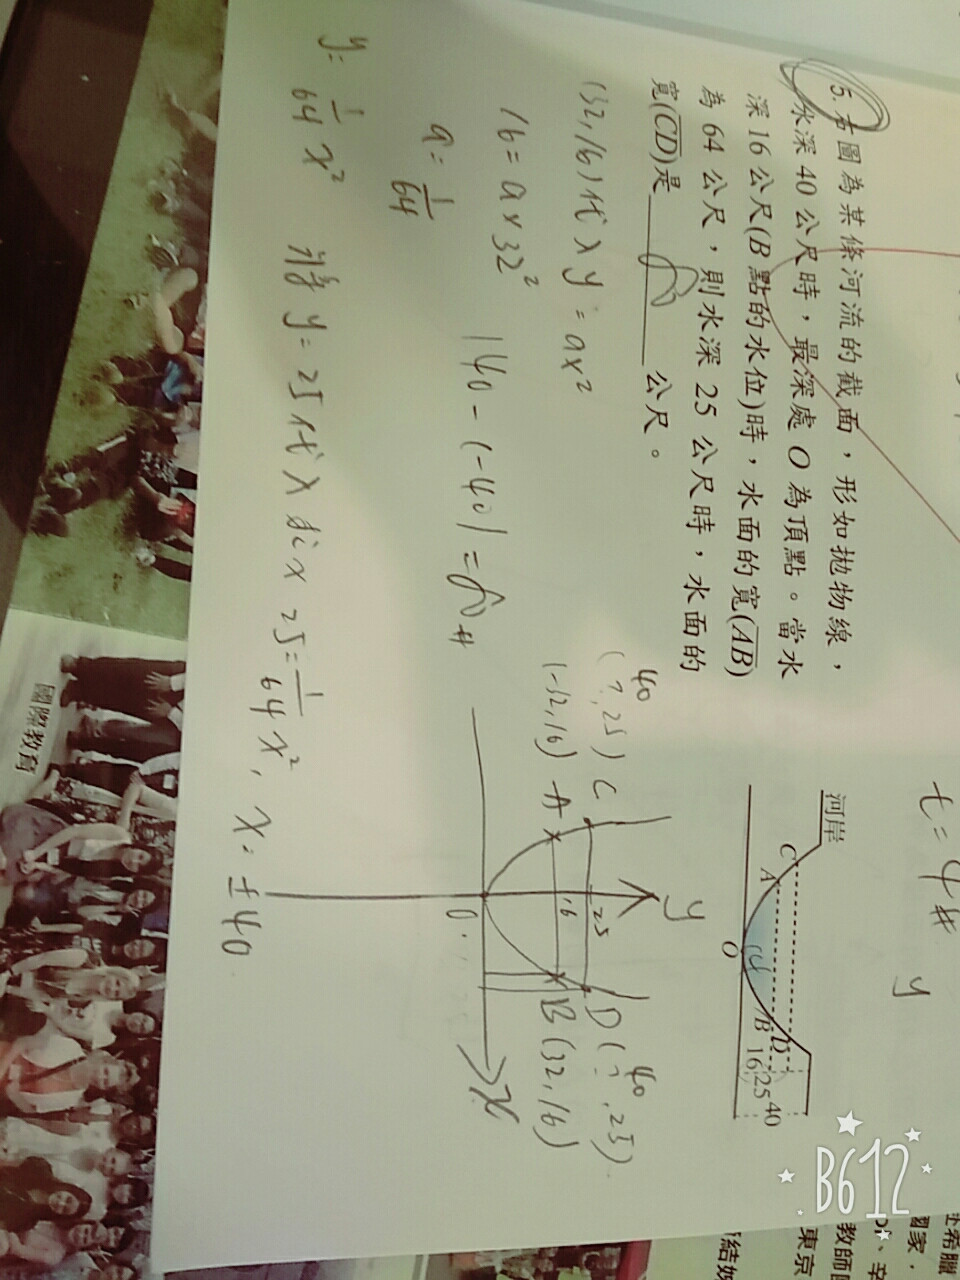 5. 右圖為某條河流的截面，形如拋物線，
水深 40 公尺時，最深處 O 為頂點。當水
深 16 公尺(B 點的水位)時，水面的寬(AB)
為 64 公尺，則水深 25 公尺時，水面的
寬(CD)是 80 公尺。
(32,16)代入 y=ax²
16=a×32²
a=1/64
y=1/64 x² 將 y=25代入 25=1/64 x², x=±40
140-(-40)=80#
河岸
C
A
O
B
D
16
25
40
y
(?,25) C
40
(-32,16) A
16
25
D (?,25)
40
B (32,16)
0
x
t=4#
y
國際教育
B612